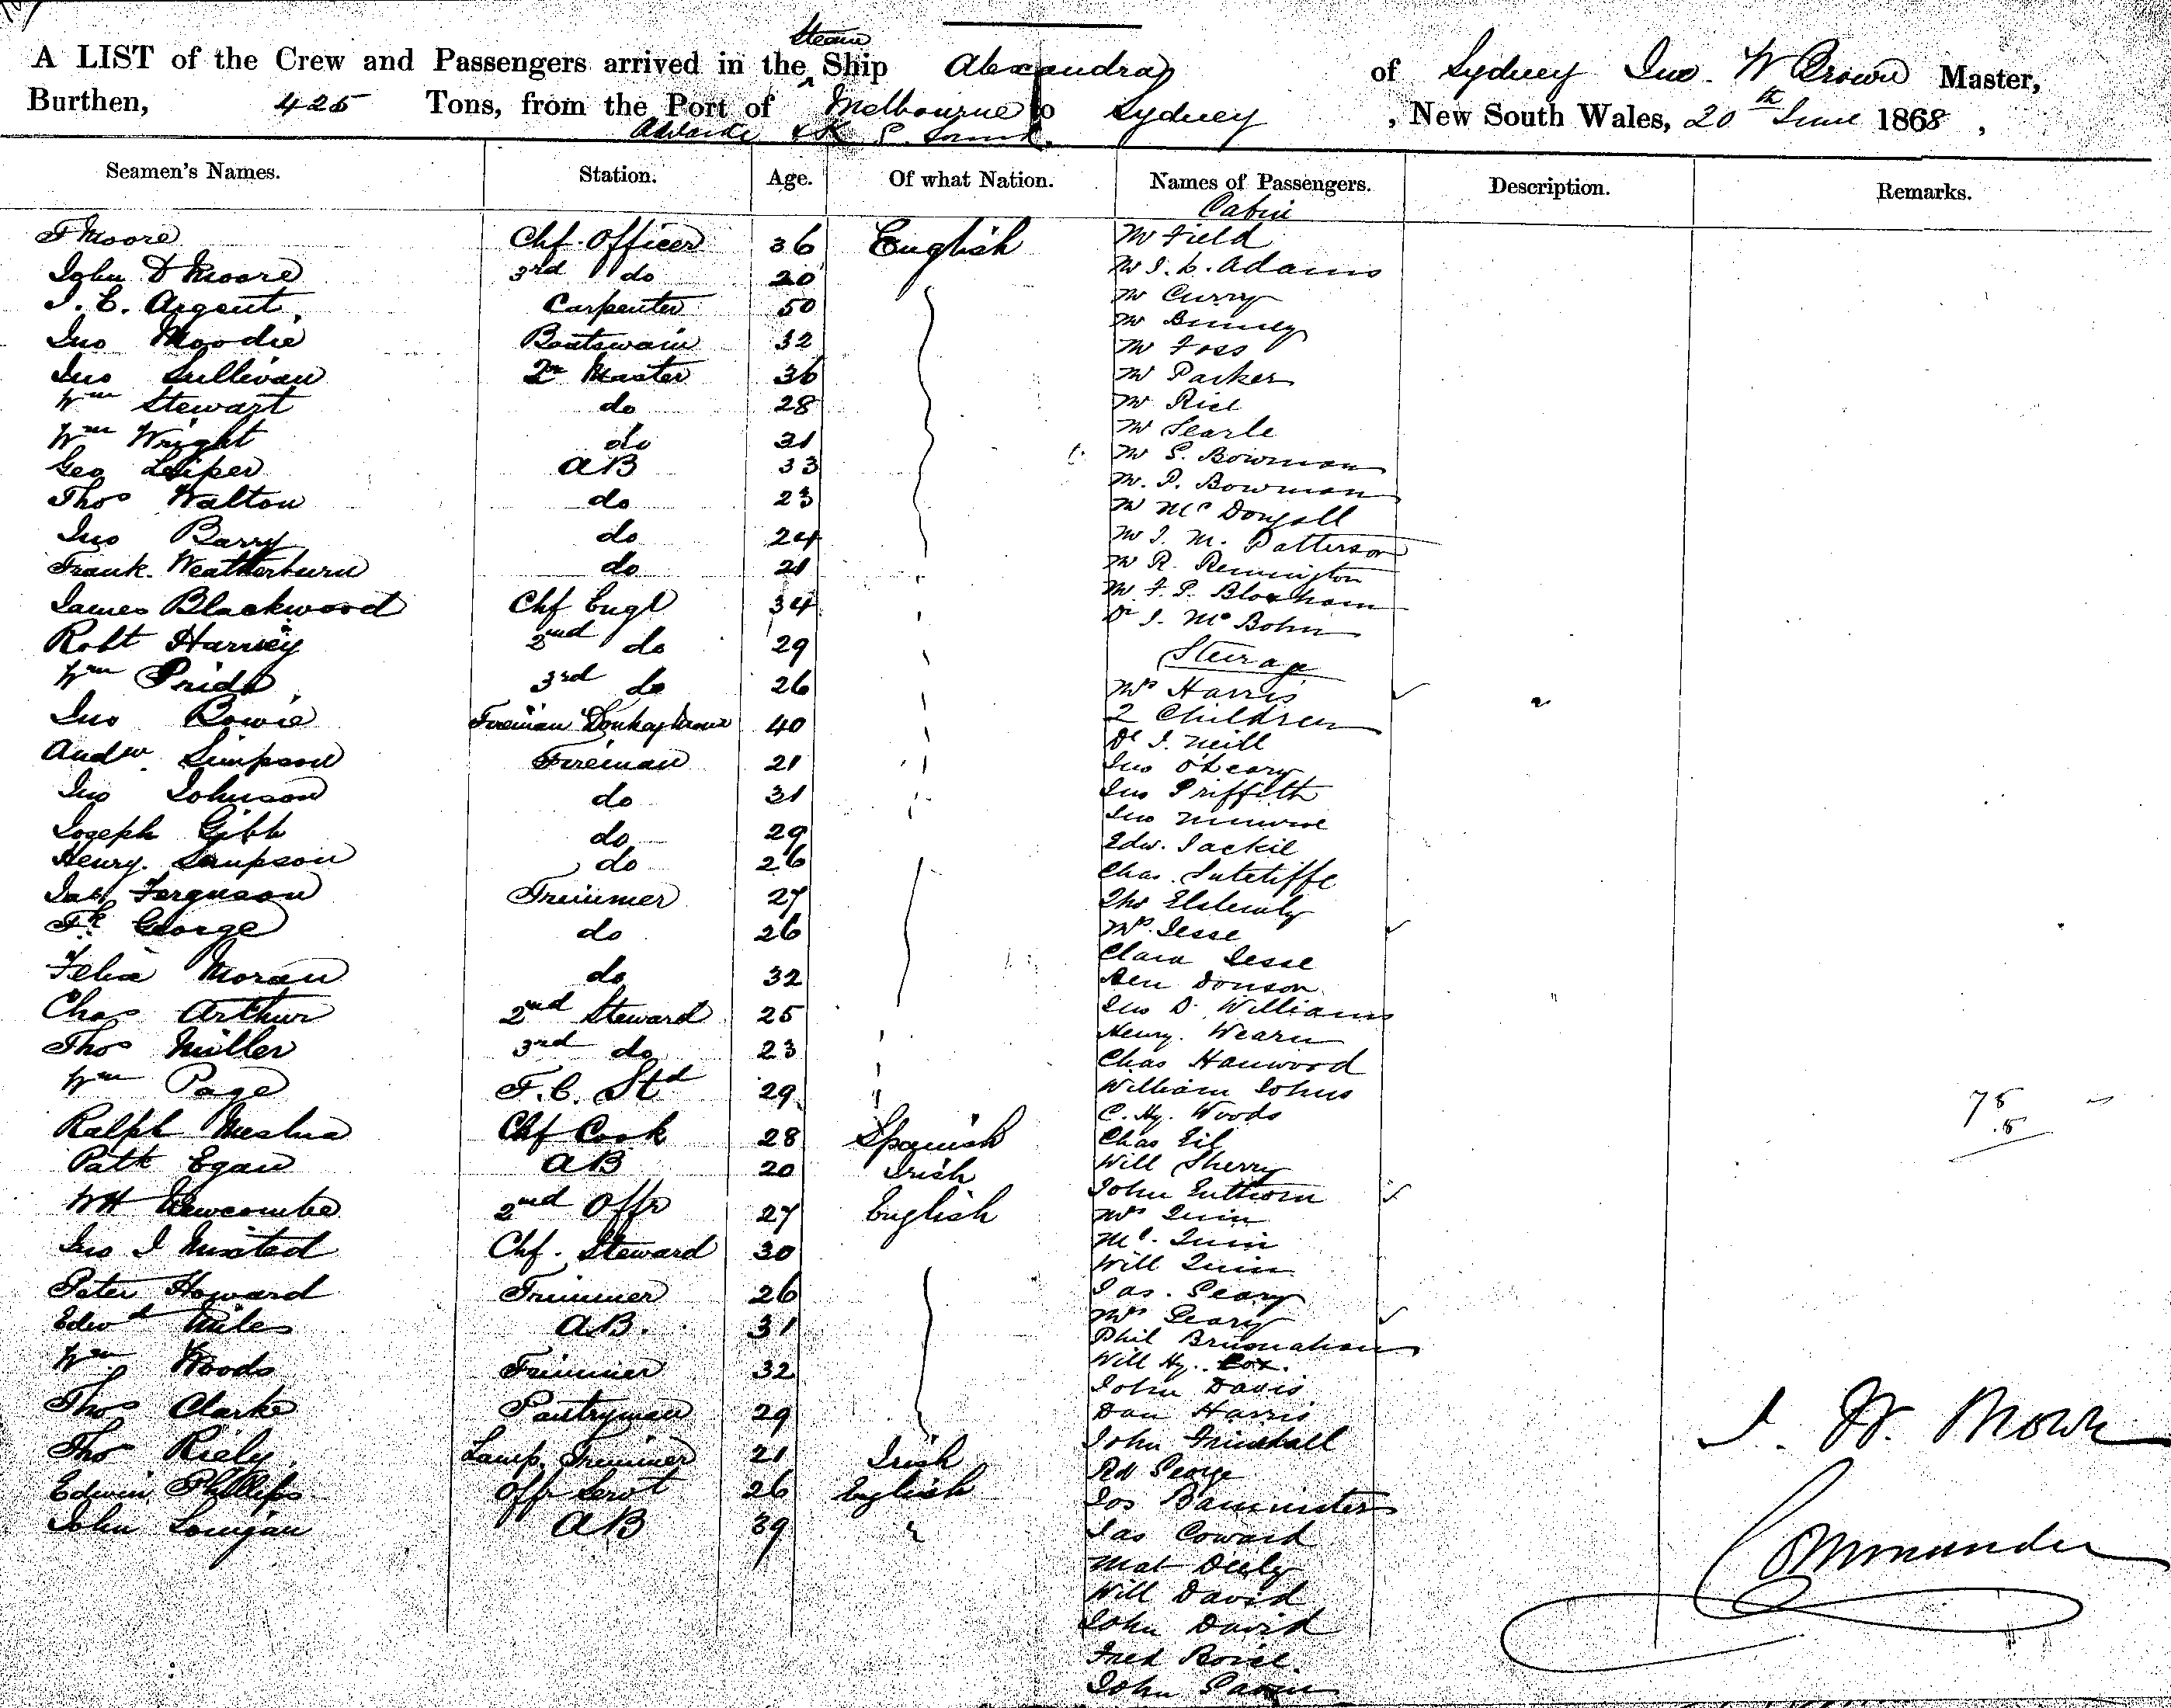 Steam
A LIST of the Crew and Passengers arrived in the Ship Alexandra of Sydney Jno. W Brown Master,
Burthen, 425 Tons, from the Port of Melbourne to Sydney, New South Wales, 20th June 1868,
Adelaide & K G. Sound.
Seamen's Names. Station. Age. Of what Nation. Names of Passengers. Description. Remarks.
Cabin
F Moore Chf. Officer 36 English
John D Moore 3rd do 20
J. C. Argent Carpenter 50
Jno Moodie Boatswain 32
Jno Sullivan 2r Master 36
Wm Stewart do 28
Wm Wright do 31
Geo Leiper AB 33
Thos Walton do 23
Jno Barry do 24
Frank Weatherburn do 21
James Blackwood Chf Engr 34
Robt Harvey 2nd do 29
Wm Pride 3rd do 26
Jno Bowie Fireman Donkeyman 40
Andw. Simpson Fireman 21
Jno Johnson do 31
Joseph Gibb do 29
Henry Sampson do 26
Jas Ferguson Trimmer 27
Fk George do 26
Felix Moran do 32
Chas Arthur 2nd Steward 25
Thos Miller 3rd do 23
Wm Page F.C. Std 29
Ralph Chf Cook 28 Spanish
Patk Egan AB 20 Irish
WH Newcombe 2nd Offr 27 English
Jno J Chf. Steward 30
Peter Howard Trimmer 26
Edwd Miles AB. 31
Wm Woods Trimmer 32
Thos Clarke Pantryman 29
Tho Riely Lamp Trimmer 21 Irish
Edwin Phillips Offr Servt 26 English
John Lonigan AB 39 "
Mr Field
Mr J. C. Adams
Mr Curry
Mr Binney
Mr Foss
Mr Parker
Mr Rice
Mr Searle
Mr S. Bowman
Mr. P. Bowman
Mr McDougall
Mr J. M. Patterson
Mr R. Remington
Mr F. P. Bloxham
Dr J.
Steerage
Mrs Harris
2 Children
J. Neill
Jno O'Leary
Jno Griffith
Jno Munroe
Edw. Jackil
Chas. Sutcliffe
Tho
Mrs Jesse
Clara Jesse
Ben Donson
Jno D. Williams
Henry. Wearn
Chas Hanwood
William Johns
C. Hy. Woods
Chas
Will Sherry
John
Mrs Quin
Quin
Will Quin
Jas. Geary
Mrs Geary
Phil Brusnahan
Will Hy. Cox.
John Davis
Dan Harris
John
Rd George
Jos Bannister
Jas Coward
Mat Deely
Will David
John David
Fred Boise.
John
75
.5
J. W. Brown
Commander